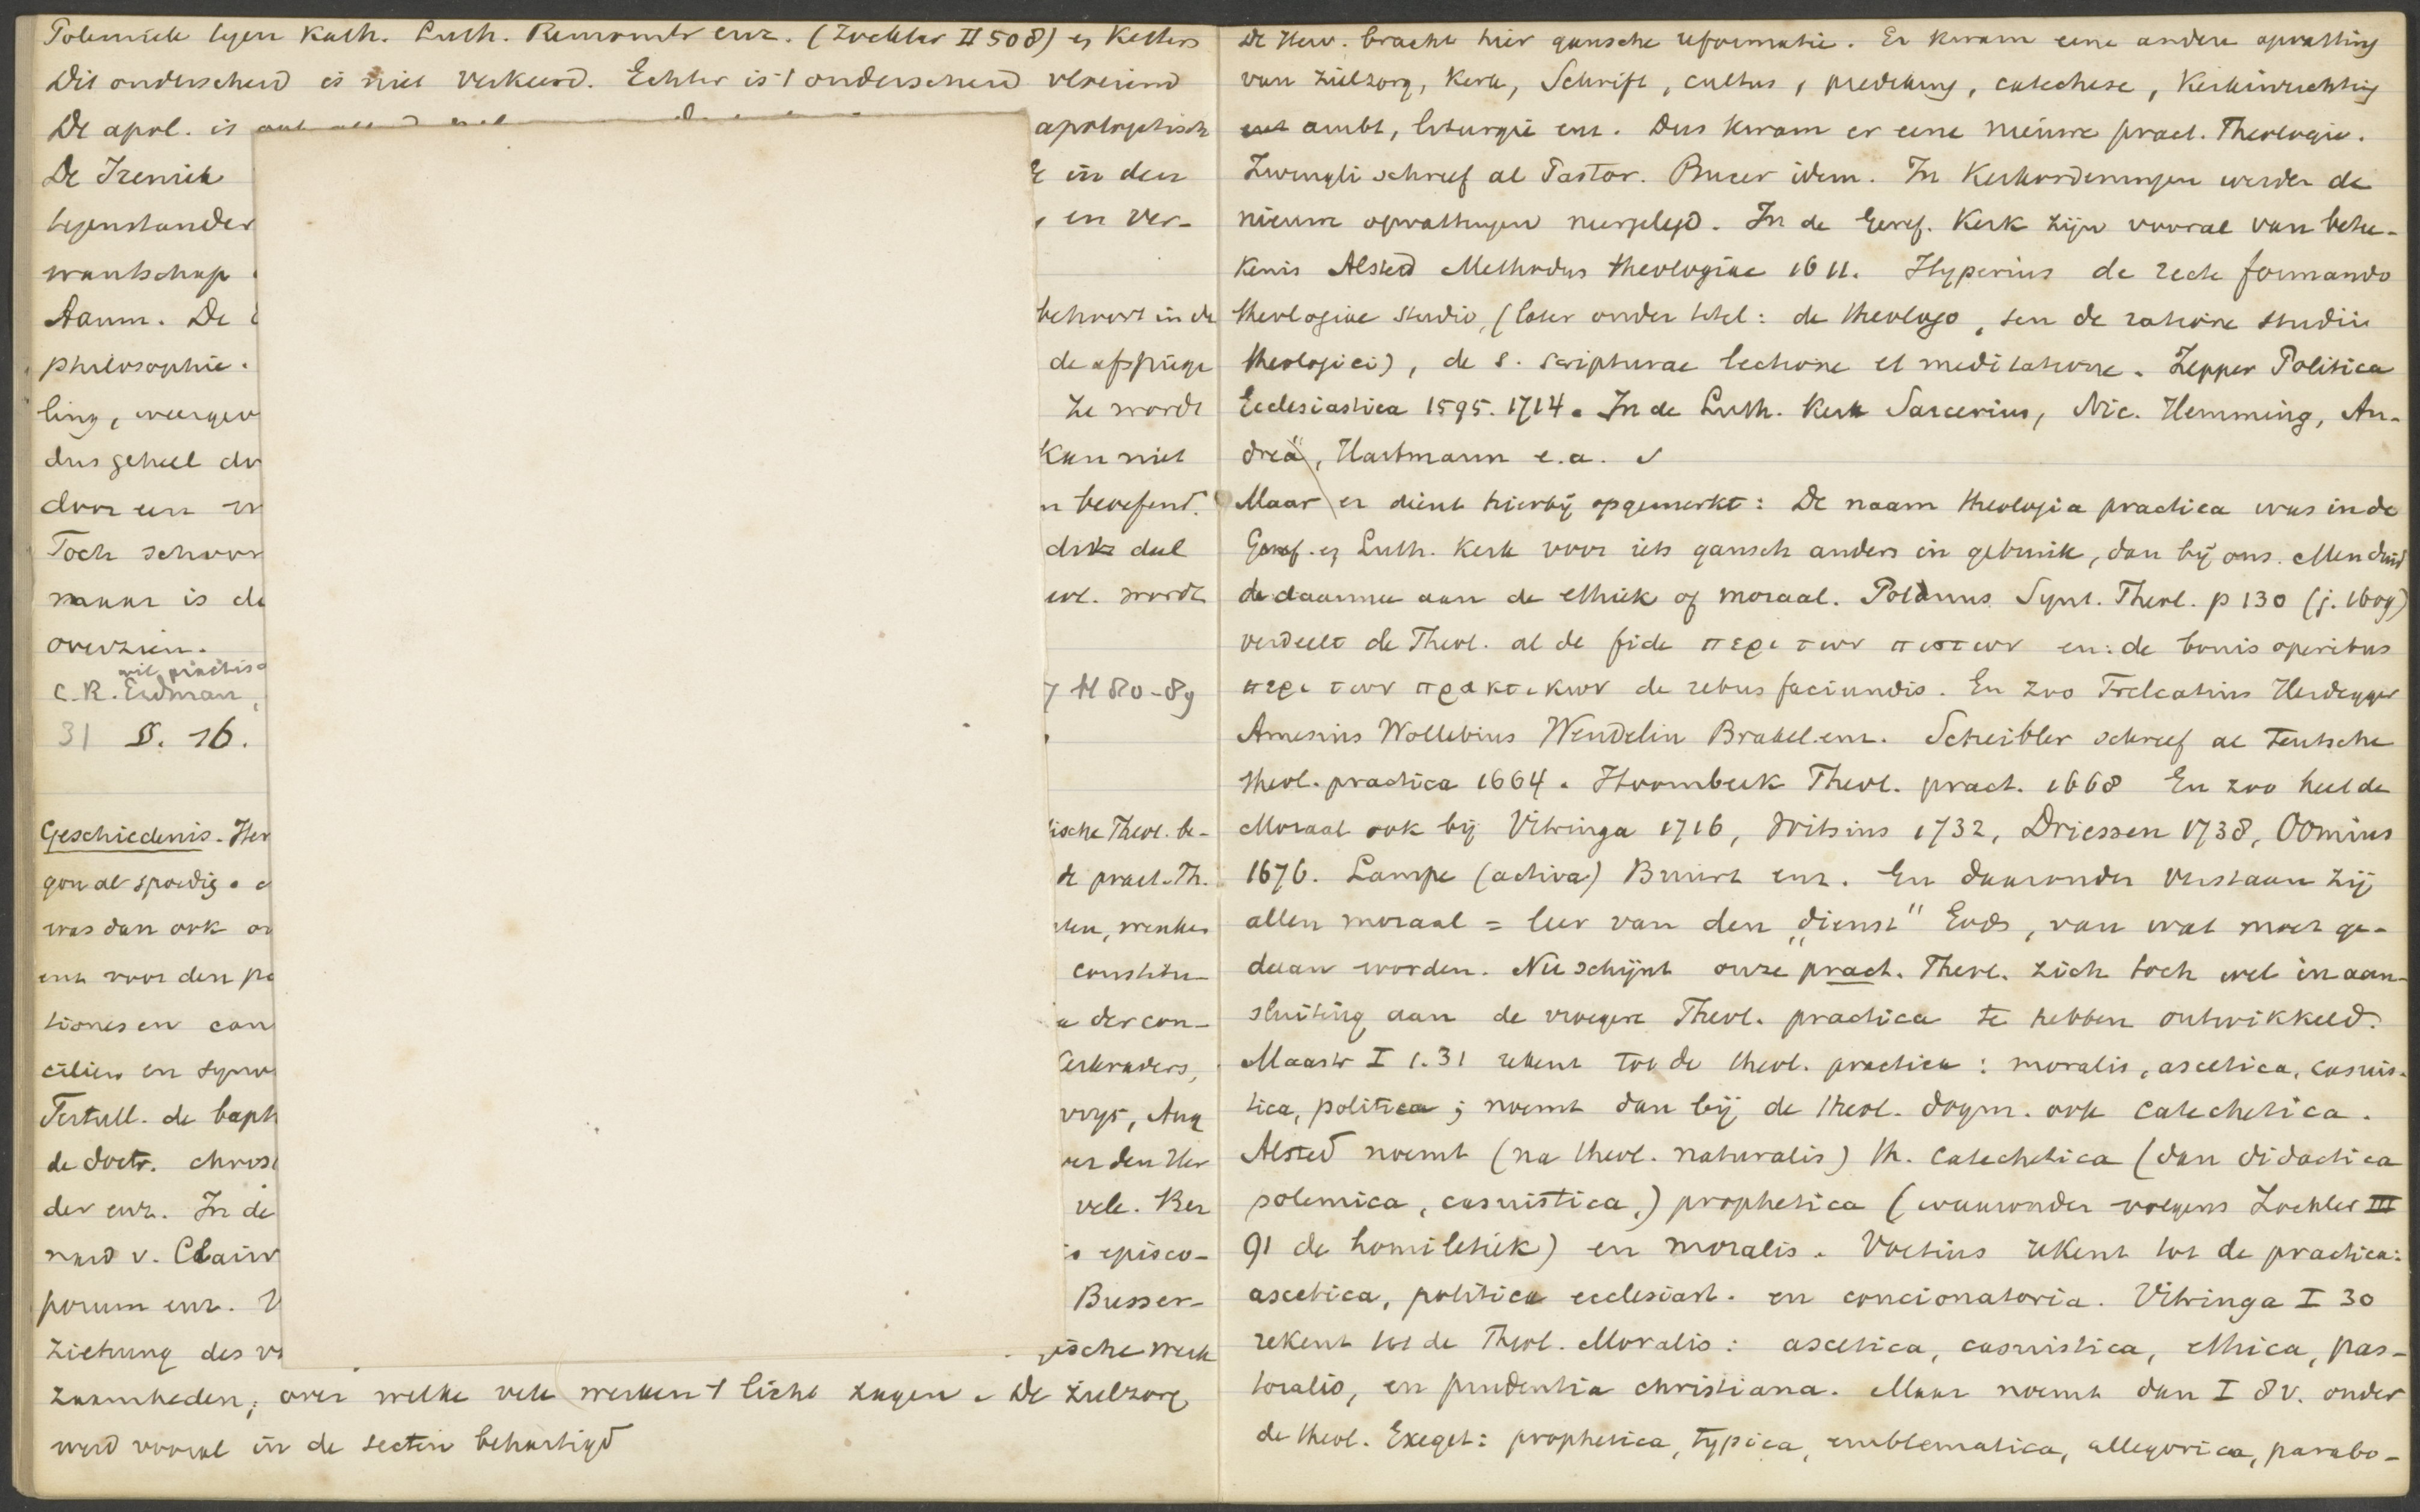 Polemiek tegen Kath. Luth. Remonstr enz. (Zockler II 508) en Ketters
Dit onderscheid is niet verkeerd. Echter is 't onderscheid vloeiend
De apol. is ook apologetisch
De Ireniek in den
tegenstander en ver-
wantschap
Aanm. De behoort in de
philosophie. de afspiege
ling, weergev ze wordt
dus geheel do kan niet
door een beoefend.
Toch schoor doel
maar is de wordt
overzien.
wil practis
C.R. Erdman, H 80-89
31 S. 16.
Geschiedenis. Her ische Theol. be-
gon al spoedig de pract. Th.
was dan ook
enz voor den pa constitu-
tiones en can der con-
ciliën en syno kerkvaders,
Tertull. de bapt Aug
de doctr. christ
der enz. In de vele. Ber
nard v. Clairv episco-
porum enz. V Busser-
ziehung des v ische werk
zaamheden, over welke vele werken 't licht zagen. De zielzorg
werd vooral in de secten behartigd
De Herv. bracht hier gansche reformatie. Er kwam eene andere opvatting
van zielzorg, Kerk, Schrift, cultus, prediking, catechese, Kerkinrichting
ambt, liturgie enz. Dus kwam er eene nieuwe pract. Theologie.
Zwingli schreef al Pastor. Bucer idem. In Kerkordeningen werden de
nieuwe opvattingen neergelegd. In de Geref. Kerk zijn vooral van betee-
kenis Alsted Methodus theologiae 1611. Hyperius de recte formando
theologiae studio, (later onder titel: de theologo, seu de ratione studii
theologici), de s. scripturae lectione et meditatione. Zepper Politica
Ecclesiastica 1595. 1714. In de Luth. Kerk Sarcerius, Nic. Hemming, An-
dreä, Hartmann e.a.
Maar er dient hierbij opgemerkt: De naam theologia practica was in de
Geref. en Luth. Kerk voor iets gansch anders in gebruik, dan bij ons. Men duid
de daarmee aan de ethiek of moraal. Polanus Synt. Theol. p 130 (j. 1609)
verdeelt de Theol. al de fide περι των πιστων en: de bonis operibus
περι των πρακτικων de rebus faciundis. En zoo Trelcatius Heidegger
Amesius Wollebius Wendelin Brakel enz. Scheibler schreef al Teutsche
theol. practica 1664. Hoornbeek Theol. pract. 1668 En zoo heet de
Moraal ook bij Vitringa 1716, Witsius 1732, Driessen 1738, Oomius
1676. Lampe (activa) Buurt enz. En daaronder verstaan zij
allen moraal = leer van den „dienst" Gods, van wat moet ge-
daan worden. Nu schijnt onze pract. Theol. zich toch wel in aan-
sluiting aan de vroegere Theol. practica te hebben ontwikkeld.
Mastr I 1.31 rekent tot de theol. practica: moralis, ascetica, casuis-
tica, politica; noemt dan bij de theol. dogm. ook catechetica.
Alsted noemt (na theol. naturalis) th. catechetica (dan didactica
polemica, casuistica,) prophetica (waaronder volgens Zockler III
91 de homiletiek) en moralis. Voetius rekent tot de practica:
ascetica, politica ecclesiast. en concionatoria. Vitringa I 30
rekent tot de Theol. Moralis: ascetica, casuistica, ethica, pas-
toralis, en prudentia christiana. Maar noemt dan I 8v. onder
de theol. Exeget: prophetica, typica, emblematica, allegorica, parabo-